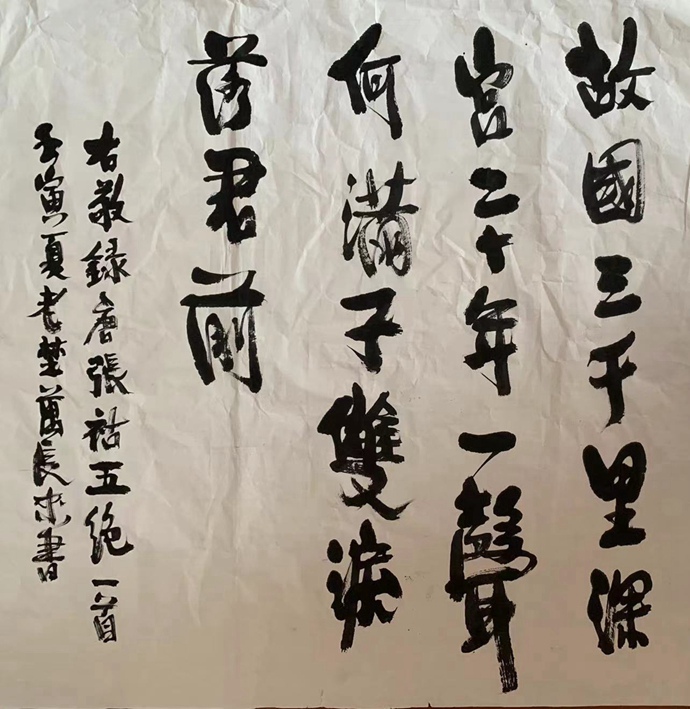 故國三千里深
宮二十年一聲
何滿子雙淚
落君前
右敬録唐張祜五絶一首
壬寅夏老楚萬長忠書